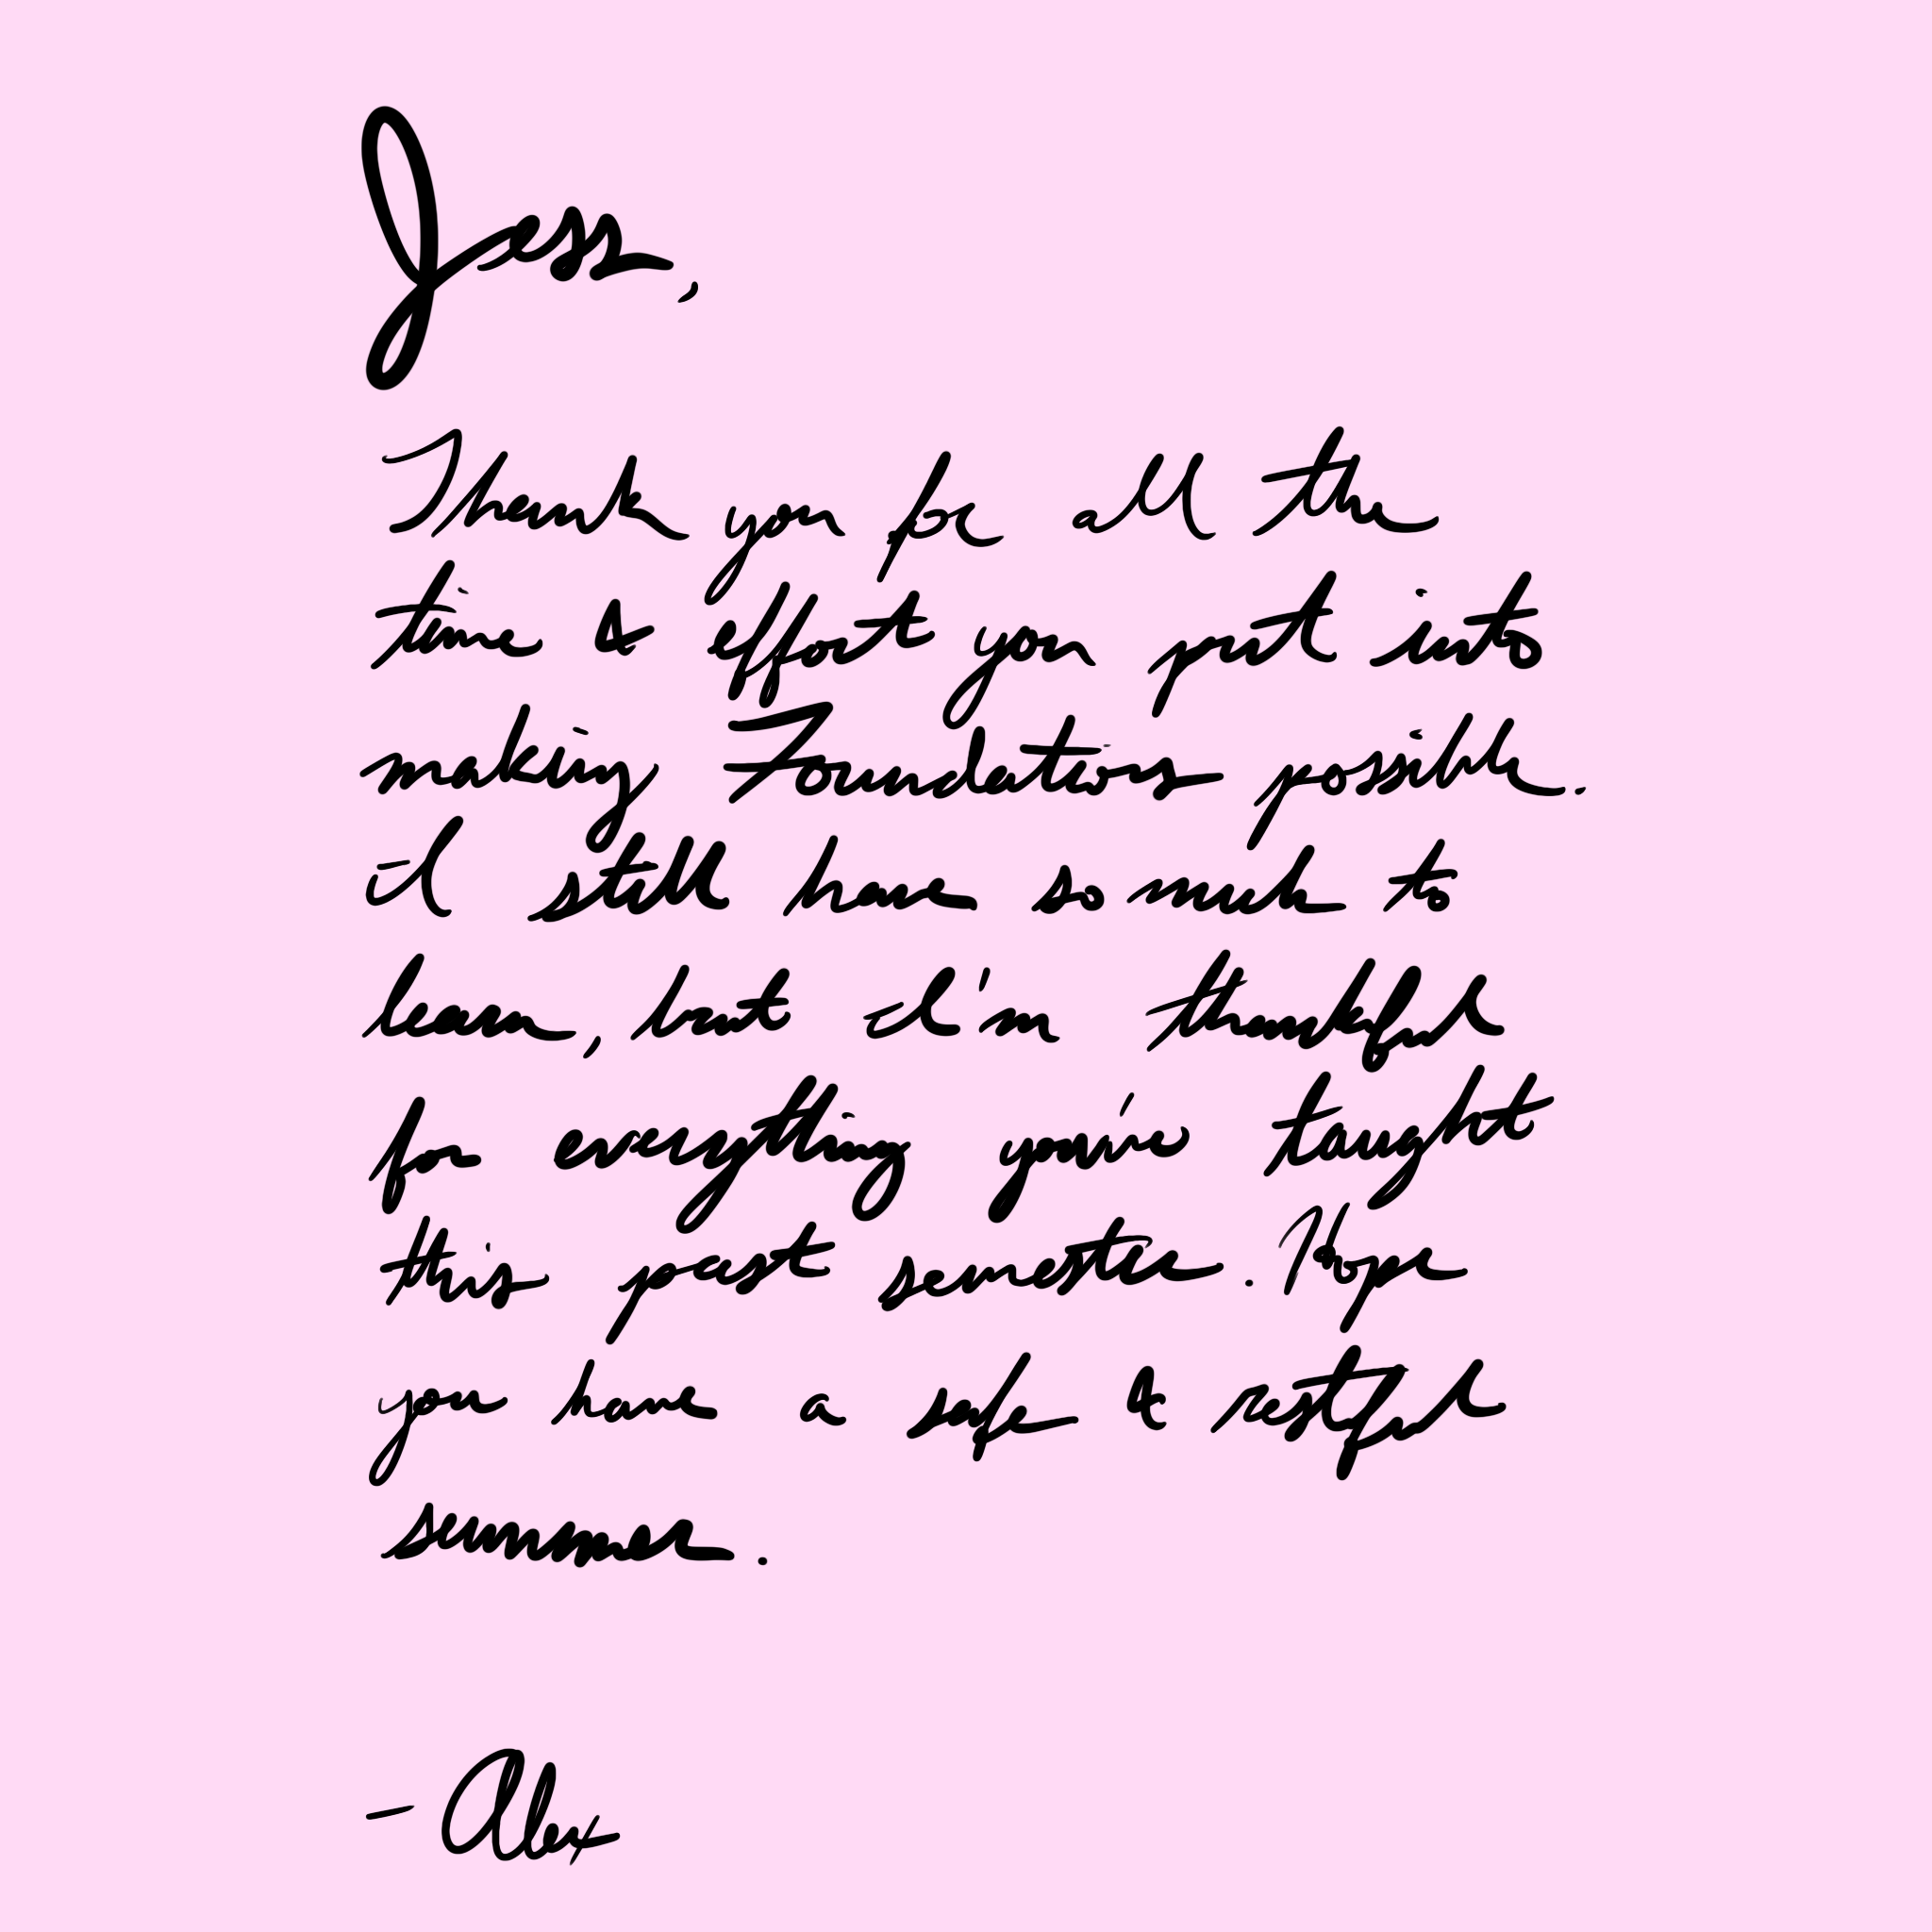 Jess,
Thank you for all the
time & effort you put into
making Foundations possible.
I still have so much to
learn, but I'm thankful
for everything you've taught
this past semester. Hope
you have a safe & restful
summer.
- Alex